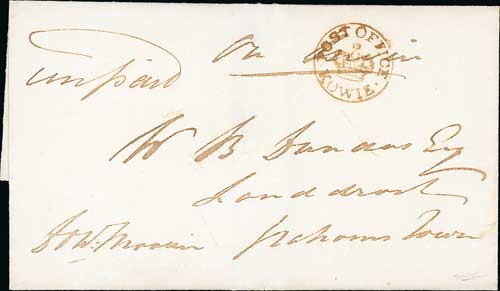 unpaid
On
POST OFFICE
KOWIE.
W B Dundas Esq
Landdrost
Grahams Town